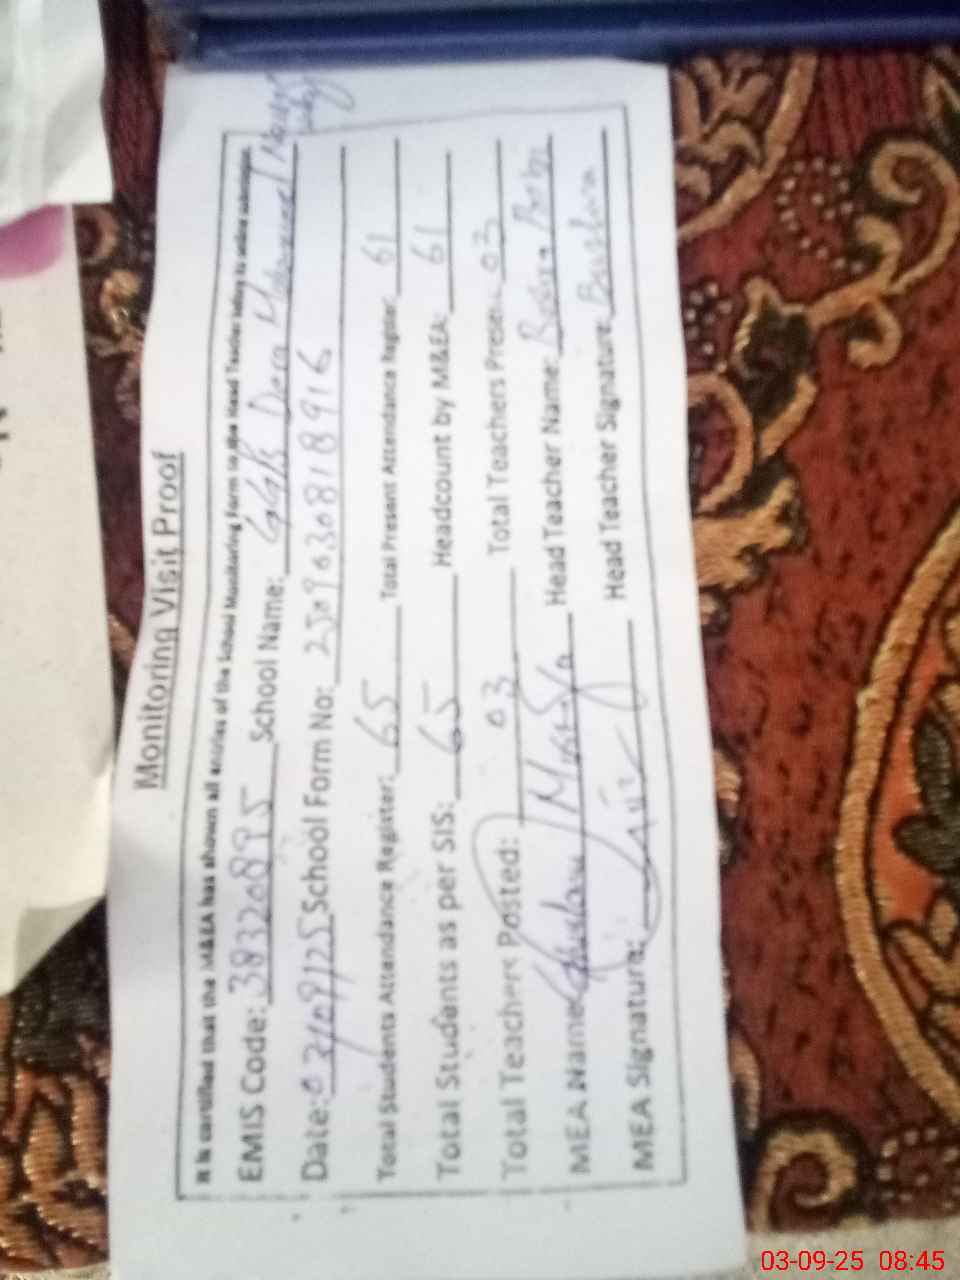 Monitoring Visit Proof
It is certified that the M&EA has shown all entries of the School Monitoring Form to the Head Teacher before its online submission.
EMIS Code: 38320895 School Name: GGPS Dera Muhammad Nawaz
Date: 03/09/25 School Form No: 2509030818916
Total Students Attendance Register: 65 Total Present Attendance Register: 61
Total Students as per SIS: 65 Headcount by M&EA: 61
Total Teachers Posted: 03 Total Teachers Present: 03
MEA Name: Ghulam Head Teacher Name: Bushra
MEA Signature: Head Teacher Signature: Bushra
03-09-25 08:45